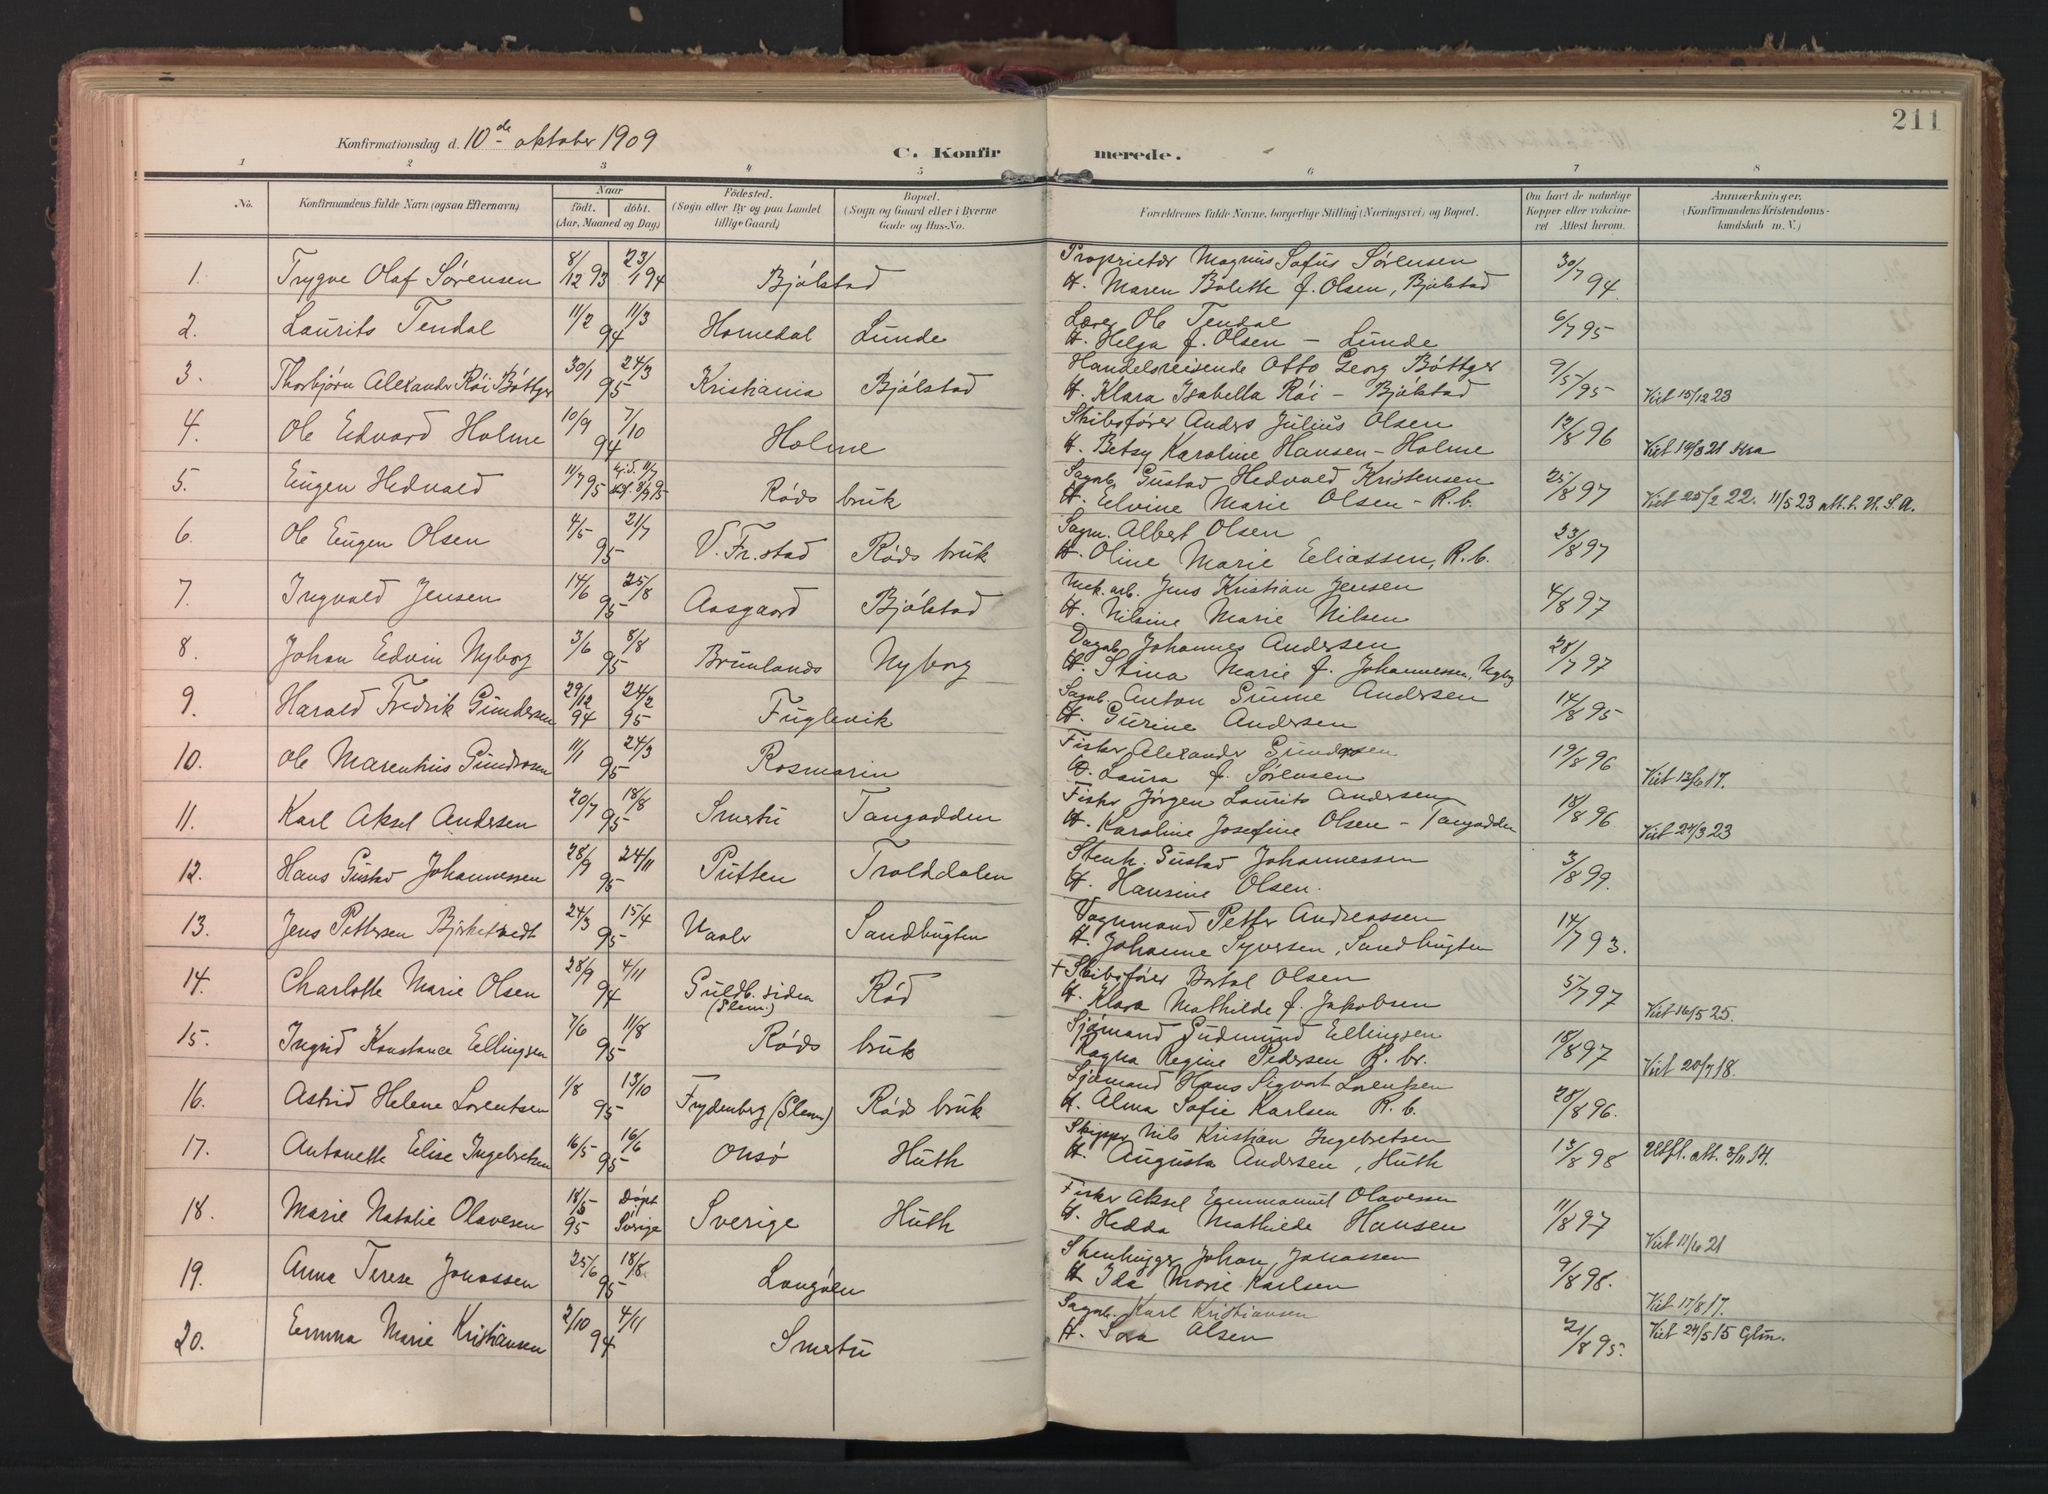 211
Konfirmationsdag d. 10de oktober 1909
C. Konfirmerede.
1 2 3 4 5 6 7 8
No.
Konfirmandens fulde Navn (ogsaa Efternavn)
Naar
födt. döbt.
(Aar, Maaned og Dag)
Födested.
(Sogn eller By og paa Landet
tillige Gaard)
Bopæl.
(Sogn og Gaard eller i Byerne
Gade og Hus-No.
Forældrenes fulde Navne, borgerlige Stilling (Næringsvei) og Bopæl.
Om havt de naturlige
Kopper eller vaccine-
ret Attest herom.
Anmærkninger.
(Konfirmandens Kristendoms-
kundskab m. V.)
1. Trygve Olaf Sørensen 8/12 93 23/1 94 Bjølstad
Proprietær Magnus Sofus Sørensen
H. Maren Bolette f. Olsen, Bjølstad 30/7 94.
2. Laurits Tendal 11/2 11/3 94 Homedal Lunde
Lærer Ole Tendal
H. Helga f. Olsen – Lunde 6/7 95
3. Thorbjørn Alexander Røi Bøttger 30/1 24/3 95 Kristiania Bjølstad
Handelsreisende Otto Georg Bøttger
H. Klara Isabella Røi – Bjølstad 9/5 95 Viet 15/12 23
4. Ole Edvard Holme 10/9 7/10 94 Holme
Skibsfører Anders Julius Olsen
H. Betsy Karoline Hansen – Holme 12/8 96 Viet 19/8 21 Kra
5. Eugen Hedvald 11/7 95 hj.d. 11/7 8/9 95 Røds bruk
Sagb. Gustav Hedvald Kristensen
H. Elvine Marie Olsen – R.b. 25/8 97 Viet 25/2 22. 11/5 23 att. t. U.S.A.
6. Ole Eugen Olsen 4/5 21/7 95 V. Fr.stad Røds bruk
Sagm. Albert Olsen
H. Oline Marie Eliassen, R.b. 23/8 97
7. Ingvald Jensen 14/6 25/8 95 Aasgaard Bjølstad
Mek. arb. Jens Kristian Jensen
H. Nilsine Marie Nilsen 4/8 97
8. Johan Edvin Nyborg 3/6 8/8 95 Brunlands Nyborg
Dagb. Johannes Andersen
H. Stina Marie f. Johannessen, Nyborg 28/7 97
9. Harald Fredrik Gundersen 29/12 94 24/2 95 Fuglevik
Sagb. Anton Grunne Andersen
H. Gurine Andersen 14/8 95
10. Ole Marenthius Gundersen 11/1 24/3 95 Rosmarin
Fisker Alexander Gundersen
H. Laura f. Sørensen 19/8 96 Viet 13/6 17.
11. Karl Aksel Andersen 20/7 18/8 95 Smertu Tangodden
Fisker Jørgen Laurits Andersen
H. Karoline Josefine Olsen – Tangodden 18/8 96 Viet 24/3 23
12. Hans Gustav Johannessen 28/9 24/11 95 Putten Trolddalen
Stenh. Gustav Johannessen
H. Hansine Olsen. 3/8 99.
13. Jens Pettersen Bjerketvedt 24/3 15/4 95 Vaaler Sandbugten
Vognmand Petter Andreassen
H. Johanne Syversen, Sandbugten 14/7 93.
14. Charlotte Marie Olsen 28/9 4/11 94 Guldb. siden (Slem.) Rød
+ Skibsfører Bertal Olsen
H. Klara Mathilde f. Jakobsen 5/7 97 Viet 16/5 25.
15. Ingrid Konstance Ellingsen 7/6 11/8 95 Røds bruk
Sjømand Gudmund Ellingsen
Ragna Regine Pedersen R. br. 18/8 97 Viet 20/7 18.
16. Astrid Helene Lorentsen 1/8 13/10 95 Frydenberg (Slem) Røds bruk
Sjømand Hans Sigvart Lorentsen
H. Alma Sofie Karlsen R.b. 28/8 96.
17. Antonette Elise Ingebretsen 16/5 16/6 95 Onsø Huth
Skipper Nils Kristian Ingebretsen
H. Augusta Andersen, Huth 13/8 98 Utfl. att. 3/11 14.
18. Marie Natalie Olavesen 18/5 95 Døpt i Sverige Sverige Huth
Fisker Aksel Emmanuel Olavessen
H. Hedda Mathilde Hansen 11/8 97 Viet 11/6 21
19. Anna Terese Jonassen 25/6 18/8 95 Langøen
Stenhugger Johan Jonassen
H. Ida Marie Karlsen 9/8 98. Viet 17/8 17.
20. Emma Marie Kristiansen 2/10 4/11 94 Smertu
Sagarb. Karl Kristiansen
H. Olsen 21/8 95. Viet 24/5 15 Glm.